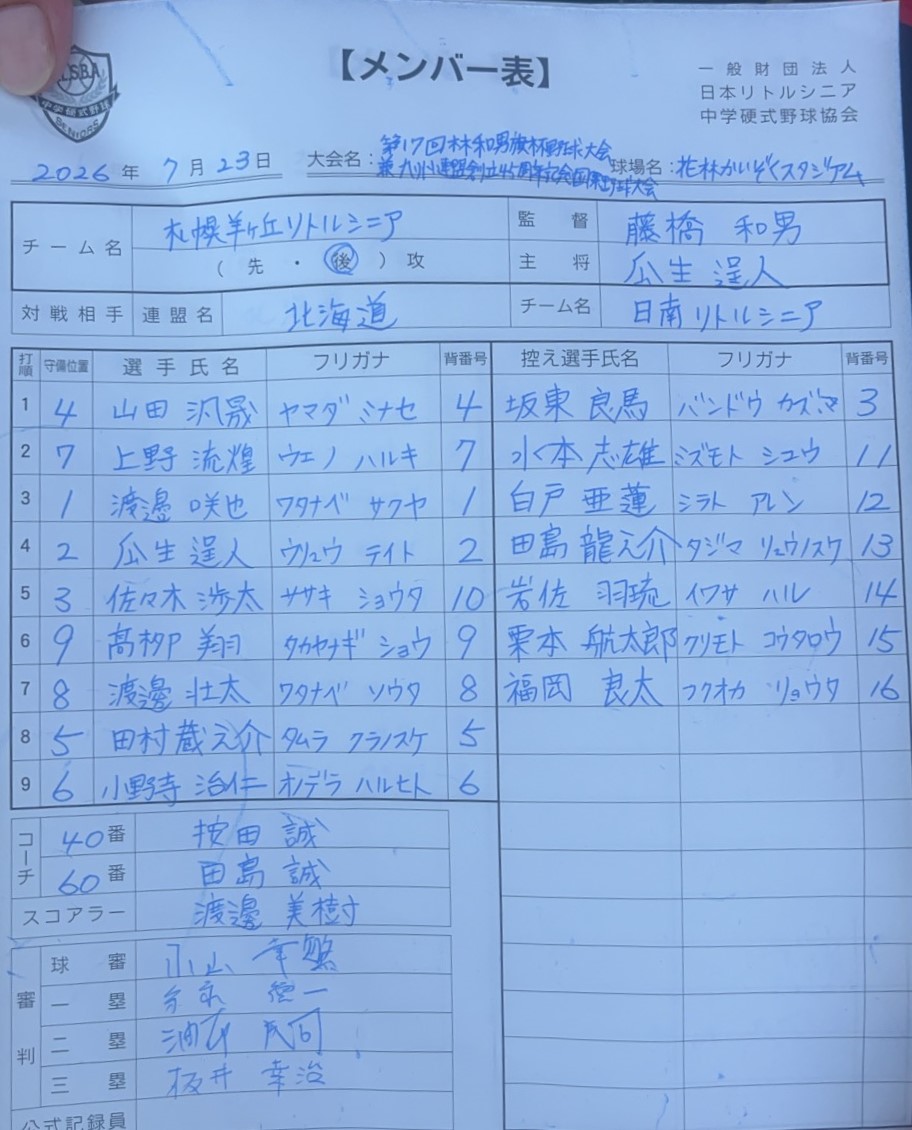 LSBA
中学硬式野球
SENIORS
【メンバー表】
一般財団法人
日本リトルシニア
中学硬式野球協会
2026年 7月23日 大会名： 第17回林和男旗杯野球大会 球場名：花林かいぞくスタジアム
チーム名 札幌羊ヶ丘リトルシニア 監督 藤橋 和男
（先・後）攻 主将 瓜生 逞人
対戦相手 連盟名 北海道 チーム名 日南リトルシニア
打順 守備位置 選手氏名 フリガナ 背番号 控え選手氏名 フリガナ 背番号
1 4 山田 汎晟 ヤマダ ミナセ 4 坂東 良馬 バンドウ カズマ 3
2 7 上野 流煌 ウエノ ハルキ 7 水本 志雄 ミズモト シユウ 11
3 1 渡邉 咲也 ワタナベ サクヤ 1 白戸 亜蓮 シラト アレン 12
4 2 瓜生 逞人 ウリュウ テイト 2 田島 龍之介 タジマ リュウノスケ 13
5 3 佐々木 渉太 ササキ ショウタ 10 岩佐 羽琉 イワサ ハル 14
6 9 髙栁 翔 タカヤナギ ショウ 9 栗本 航太郎 クリモト コウタロウ 15
7 8 渡邉 壮太 ワタナベ ソウタ 8 福岡 良太 フクオカ リョウタ 16
8 5 田村 蔵之介 タムラ クラノスケ 5
9 6 小野寺 治仁 オノデラ ハルヒト 6
コーチ 40番 按田 誠
60番 田島 誠
スコアラー 渡邉 美樹
審判 球審 小山
一塁 徳一
二塁
三塁 坂井 幸治
公式記録員